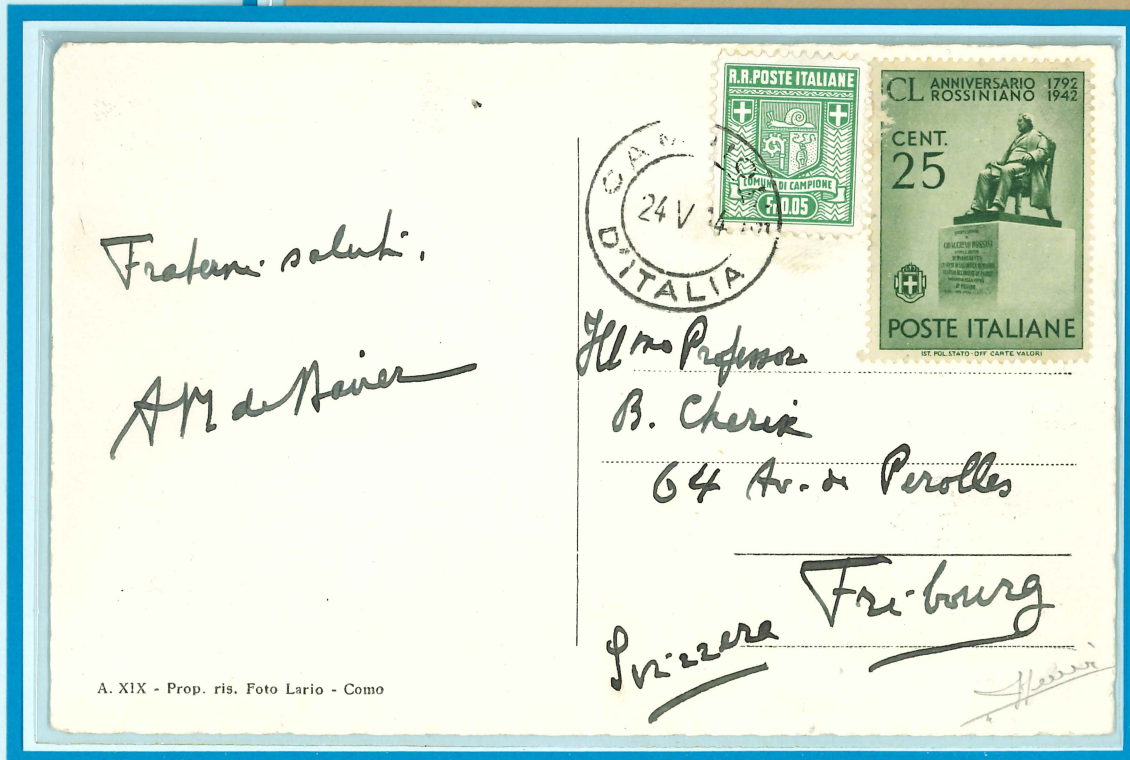 Fraterni saluti.
A M de
A. XIX - Prop. ris. Foto Lario - Como
CAMPIONE
24 V
D'ITALIA
R.R. POSTE ITALIANE
COMUNE DI CAMPIONE
Fr. 0.05
CL ANNIVERSARIO 1792
ROSSINIANO 1942
CENT.
25
POSTE ITALIANE
IST. POL. STATO - OFF CARTE VALORI
Ill mo Professore
B. Cherix
64 Av. de Perolles
Fribourg
Svizzera